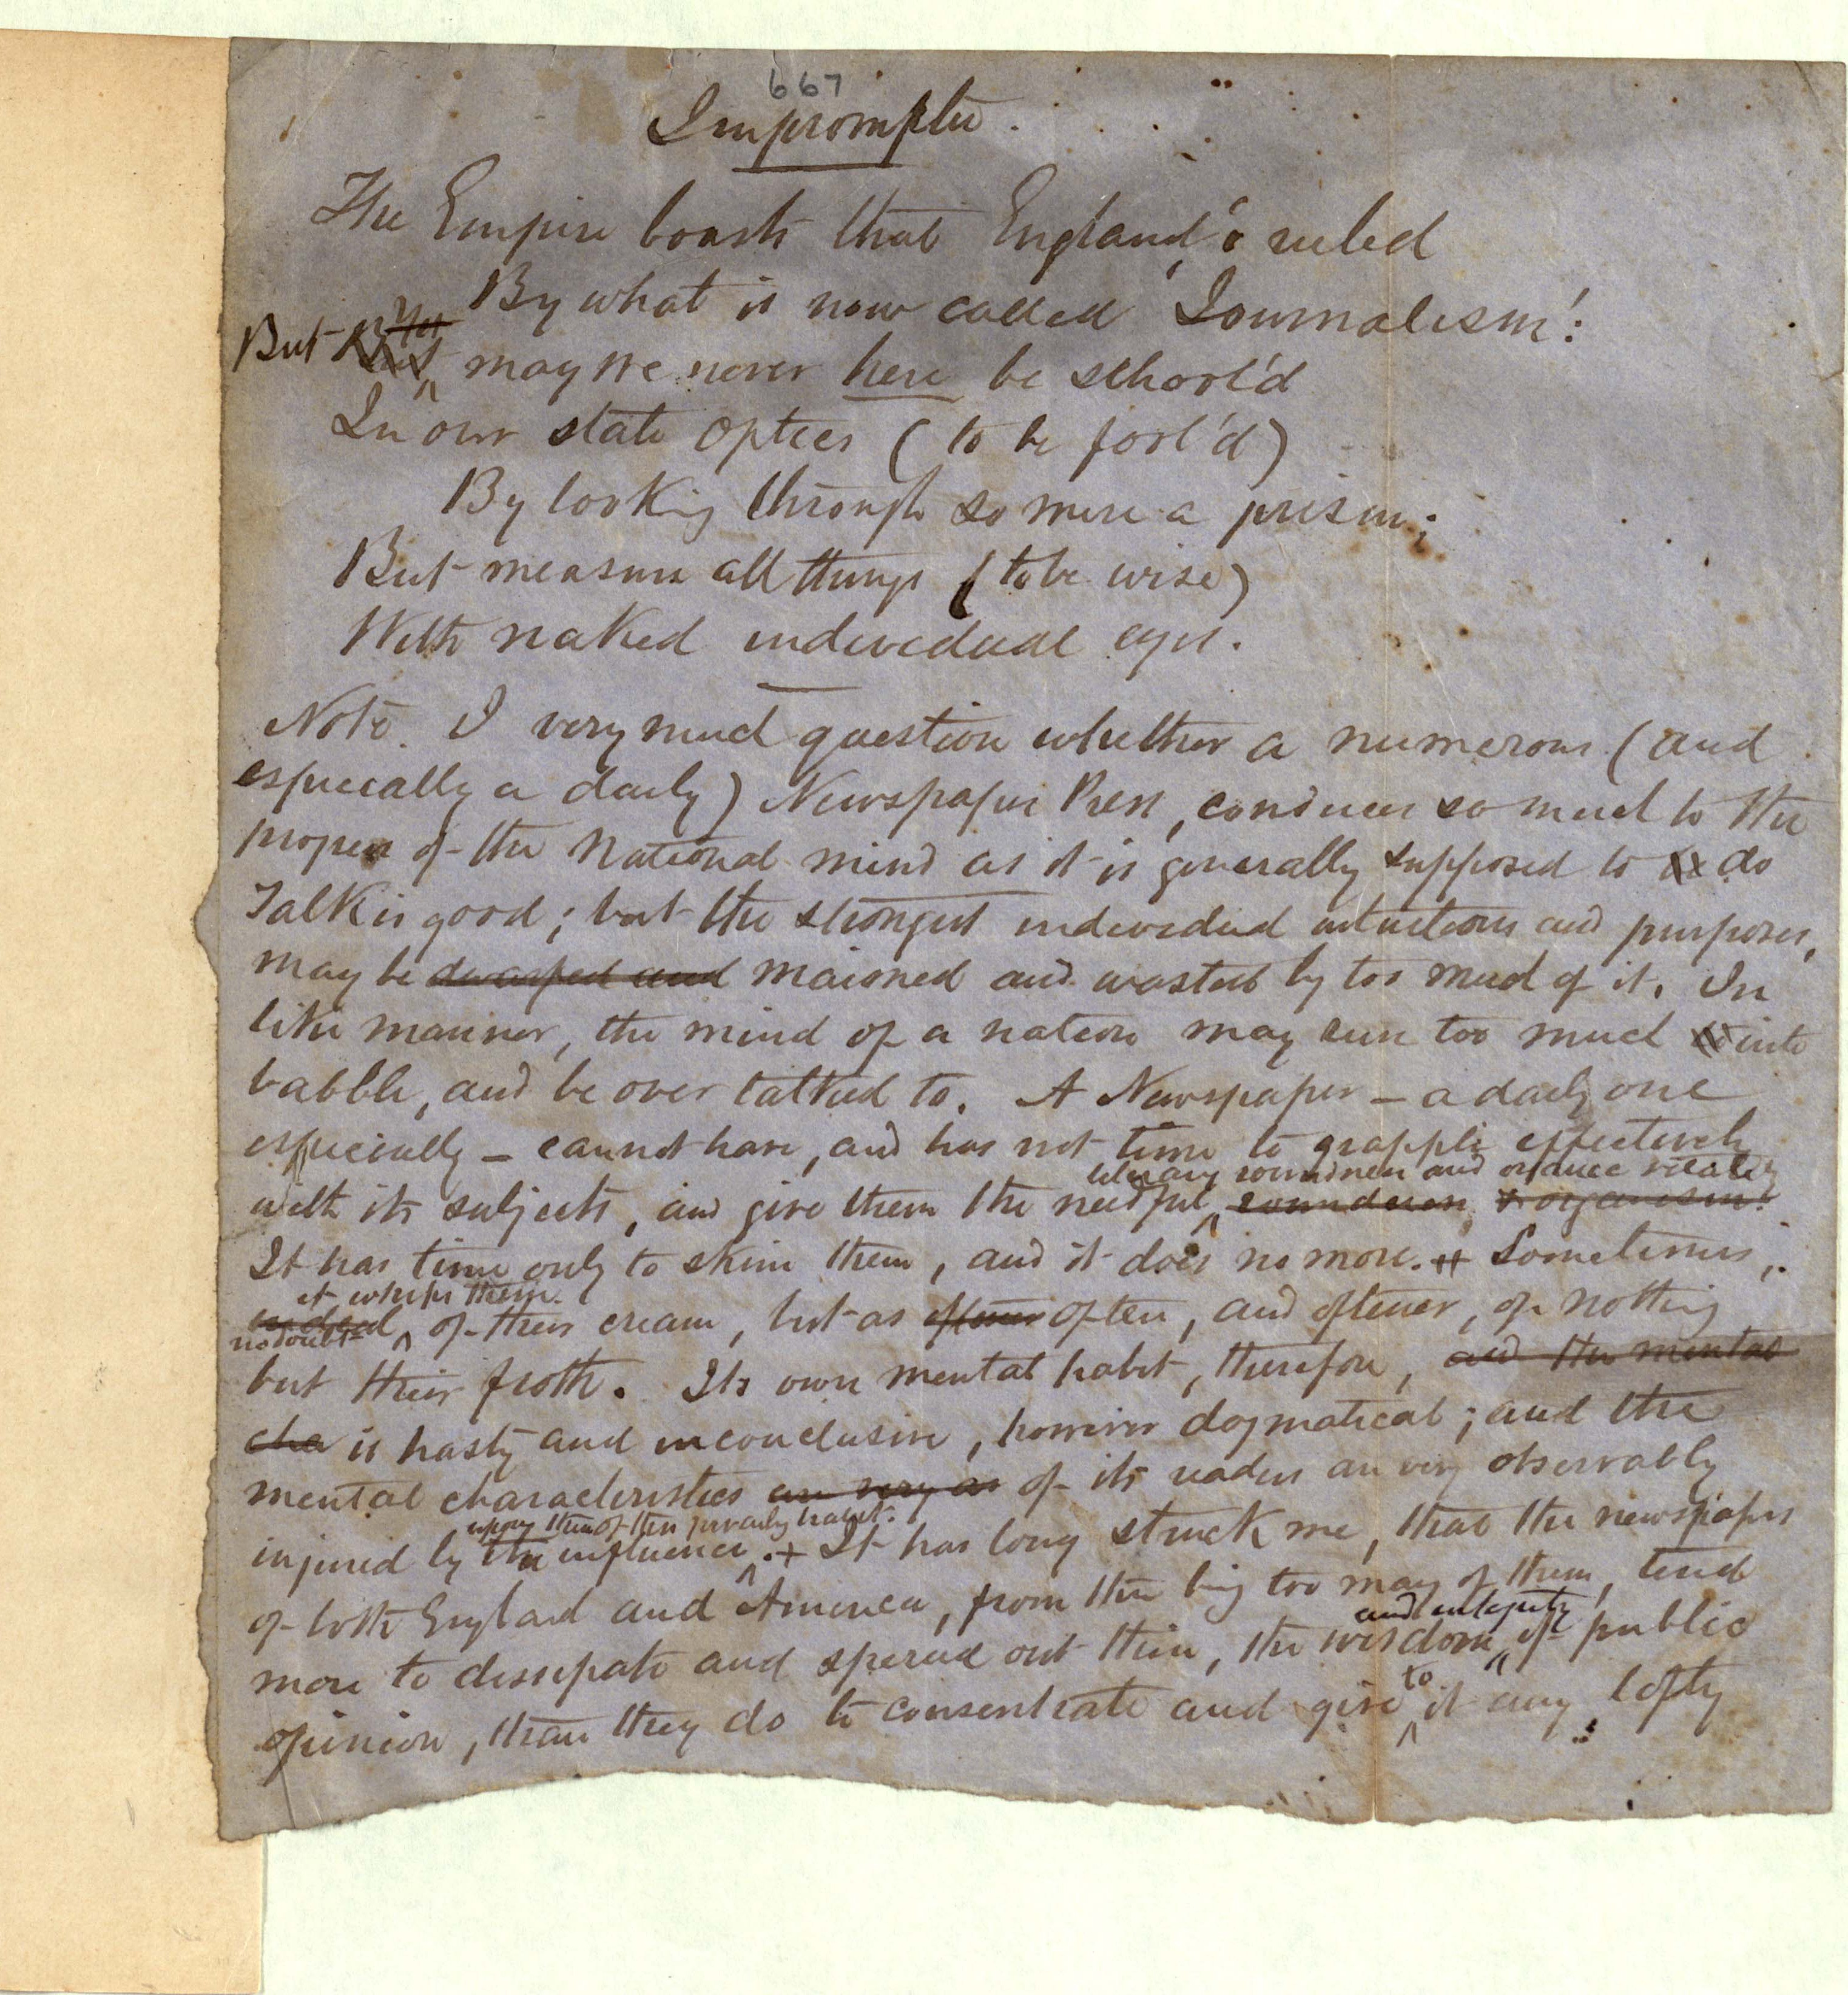 667
Impromptu.
The Empire boasts that England's ruled
By what is now called 'Journalism':
But ~~But~~ ~~Yet~~ may we never here be school'd
In our state optics (to be fool'd)
By looking through so mere a prism;
But measure all things (to be wise)
With naked individual eyes.
Note. I very much question whether a numerous (and
especially a daily) Newspaper Press, conduces so much to the
progress of the National mind as it is generally supposed to do
Talk is good; but the strongest individual intuitions and purposes,
may be ~~dwarfed and~~ maimed and wasted by too much of it. In
like manner, the mind of a nation may run too much into
babble, and be over talked to. A Newspaper – a daily one
especially – cannot have, and has not time to grapple effectively
literary soundness and organic vitality
with its subjects, and give them the needful ~~soundness~~ ~~& organism.~~
It has time only to skim them, and it does no more. Sometimes,
it whips them
no doubt of their cream, but as ~~oftener~~ often, and oftener, of nothing
but their froth. Its own mental habit, therefore, ~~and the mental~~
~~cha~~ is hasty and inconclusive, however dogmatical; and the
mental characteristics ~~are very as~~ of its readers are very observably
upon them of this precise habit.
injured by the influence. + It has long struck me, that the newspapers
of both England and America, from their being too many of them, tend
and integrity
more to dissipate and spread out thin, the wisdom of public
to
opinion, than they do to consentrate and give it any lofty